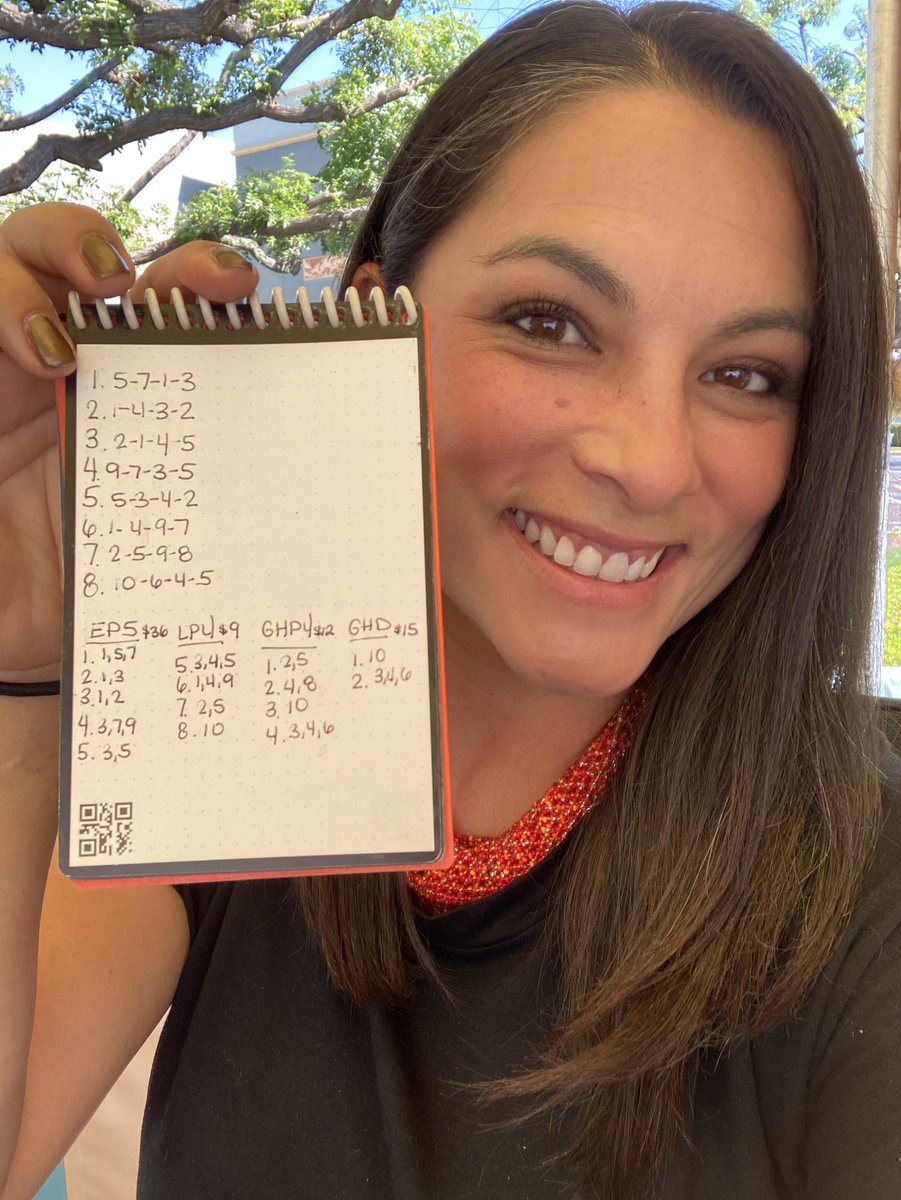 1. 5-7-1-3
2. 1-4-3-2
3. 2-1-4-5
4. 9-7-3-5
5. 5-3-4-2
6. 1-4-9-7
7. 2-5-9-8
8. 10-6-4-5
EP5 $36 LPU $9 GHP4 $12 GHD $15
1. 1,5,7 5. 3,4,5 1. 2,5 1. 10
2. 1,3 6. 1,4,9 2. 4,8 2. 3,4,6
3. 1,2 7. 2,5 3. 10
4. 3,7,9 8. 10 4. 3,4,6
5. 3,5